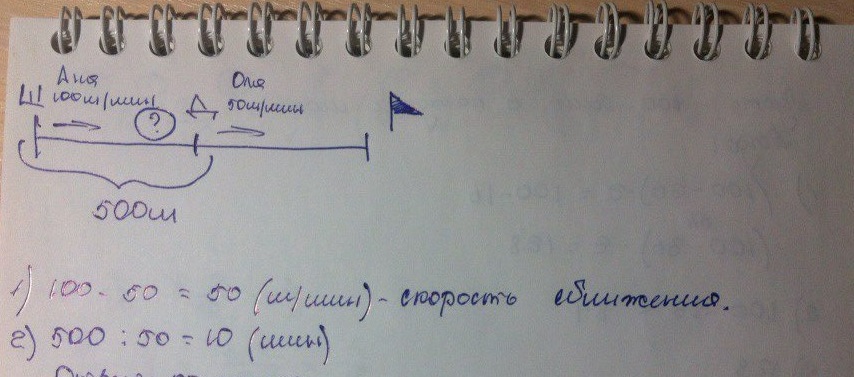 Аня Оля
Ш 100м/мин Д 50м/мин
?
500м
1) 100 - 50 = 50 (м/мин) - скорость сближения.
2) 500 : 50 = 10 (мин)